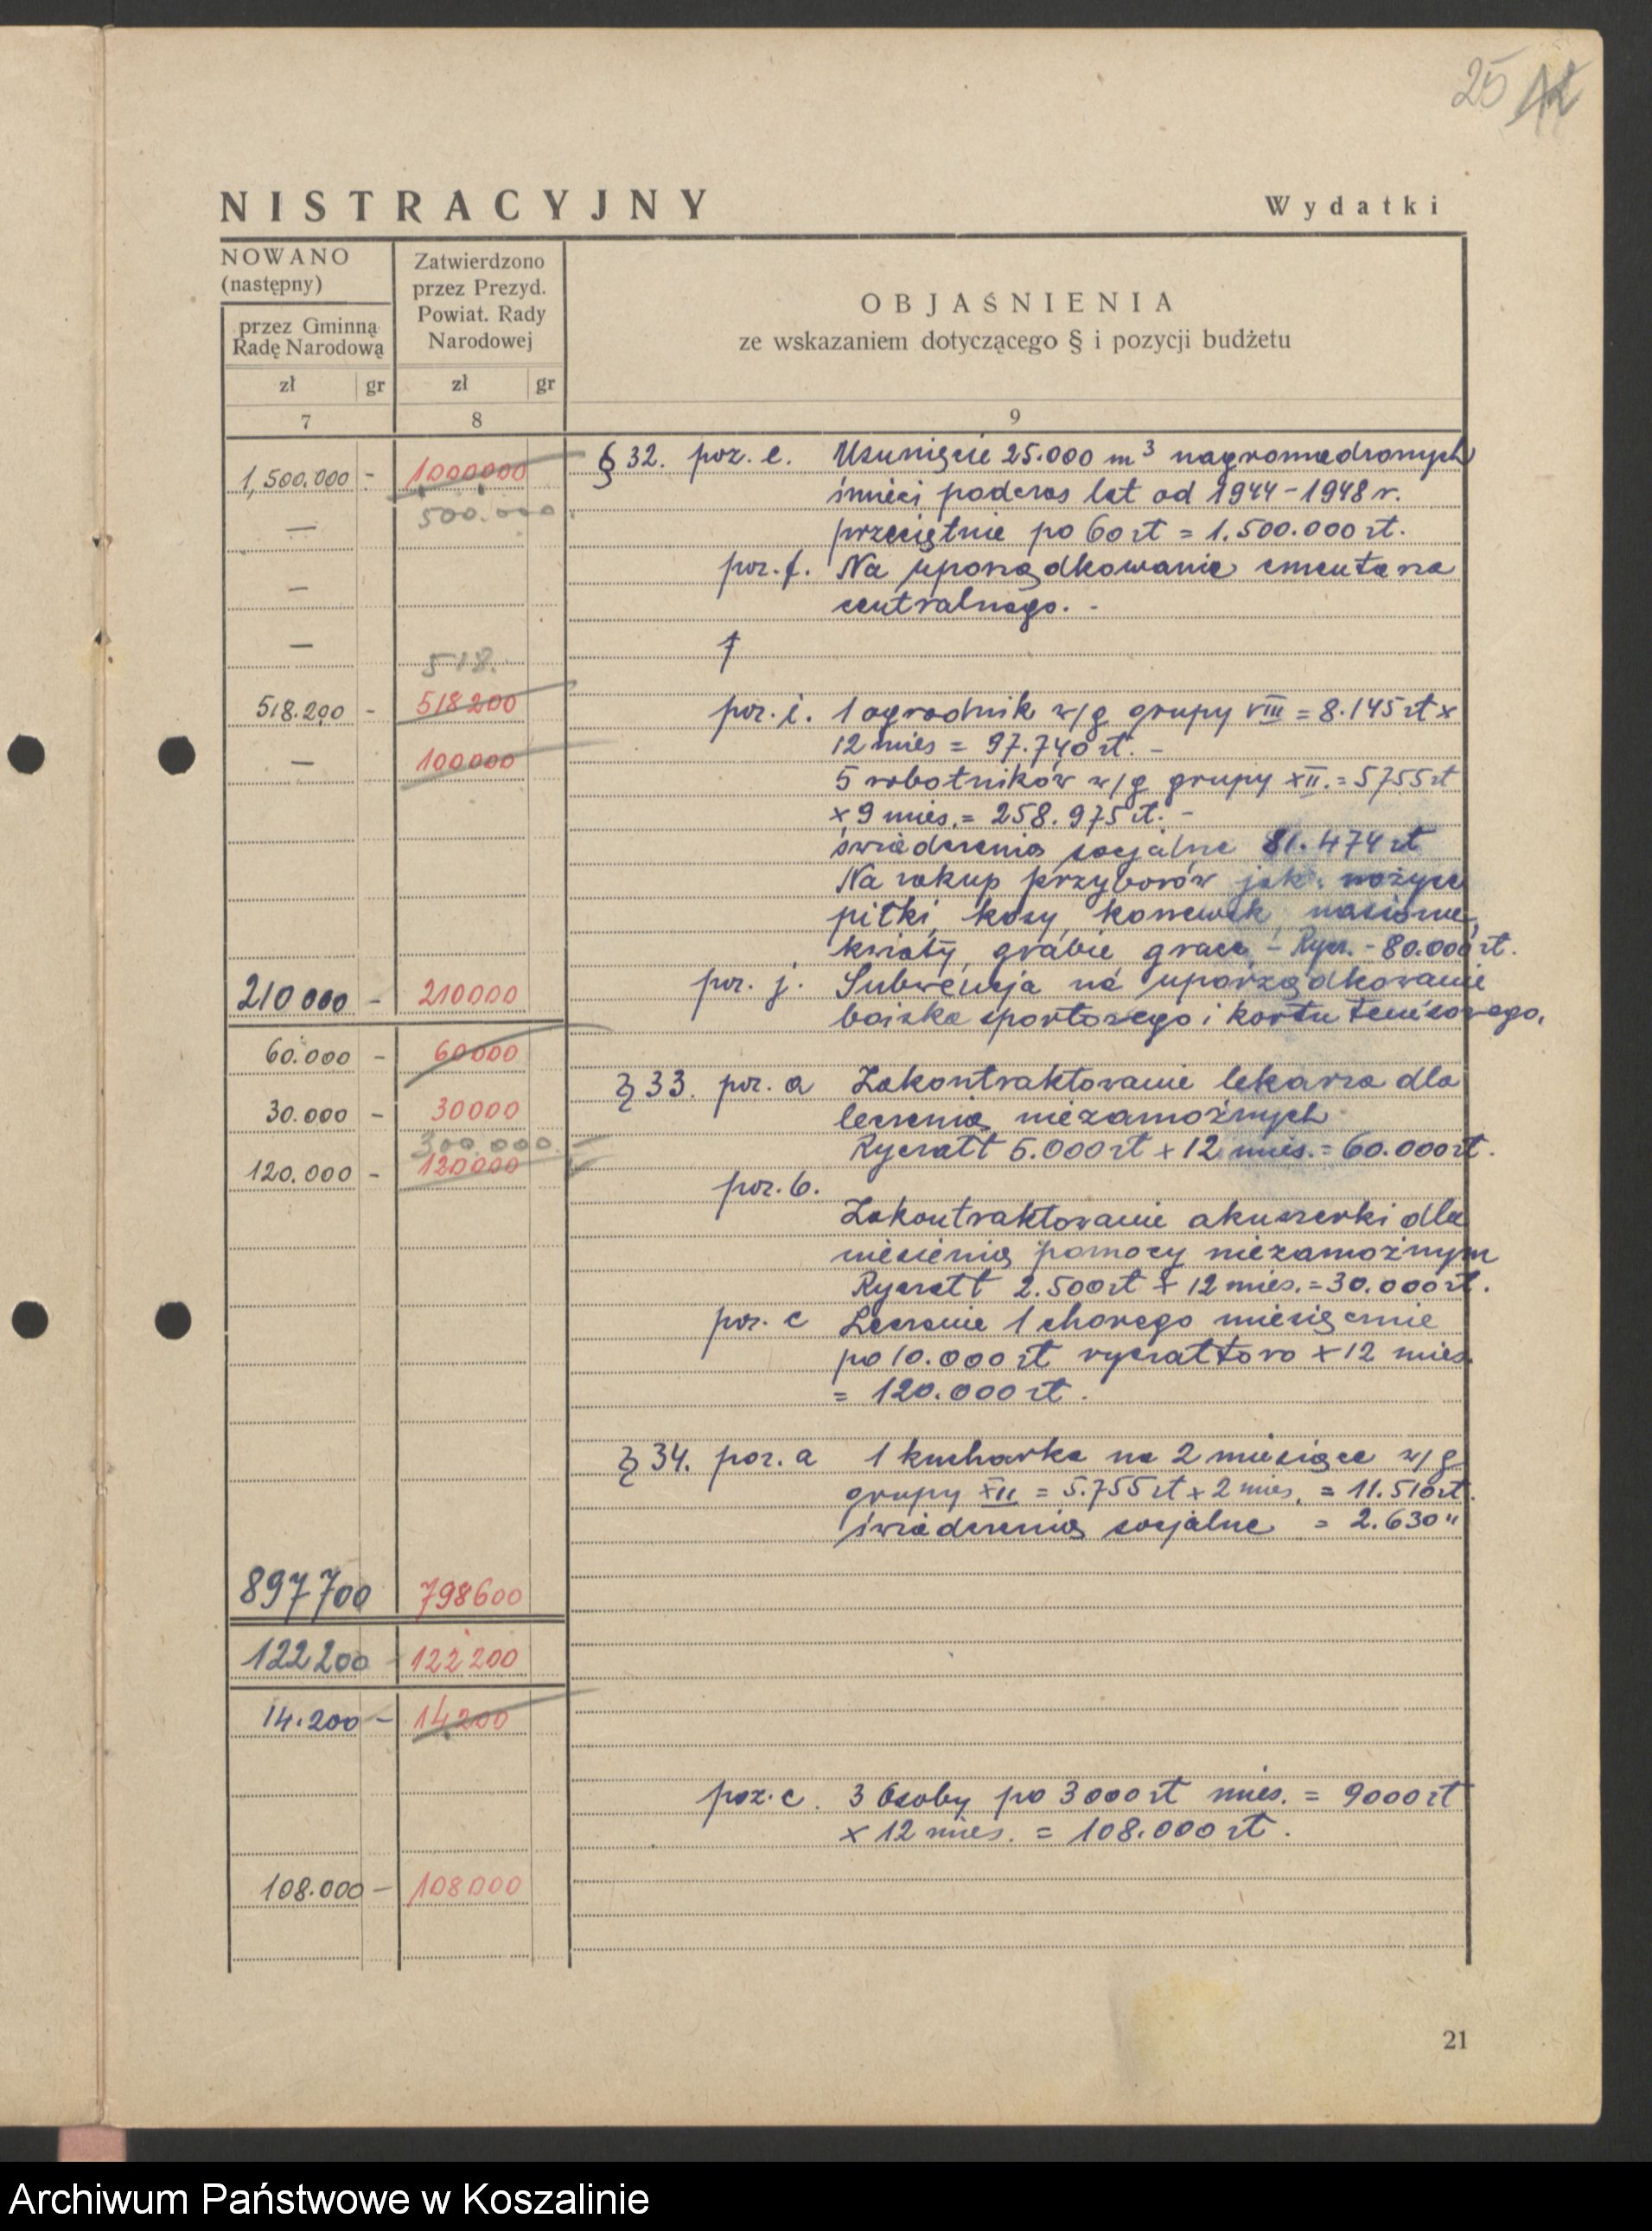 25
NISTRACYJNY
Wydatki
NOWANO
(następny)
przez Gminną
Radę Narodową
zł gr
7
Zatwierdzono
przez Prezyd.
Powiat. Rady
Narodowej
zł gr
8
OBJAŚNIENIA
ze wskazaniem dotyczącego § i pozycji budżetu
9
1,500.000 - 1000000
500.000
—
—
—
518.
518.200 - 518200
— 100000
210000 - 210000
60.000 - 60000
30.000 - 30000
300.000
120.000 - 120000
897700 798600
122200 - 122200
14.200 - 14200
108.000 - 108000
§ 32. poz. e. Usunięcie 25.000 m³ nagromadzonych
śmieci podczas lat od 1944-1948 r.
przeciętnie po 60 zł = 1.500.000 zł.
poz. f. Na uporządkowanie cmentarza
centralnego. -
poz. i. 1 ogrodnik w/g grupy VIII = 8.145 zł x
12 mies = 97.740 zł. -
5 robotników w/g grupy XII. = 5755 zł
x 9 mies. = 258.975 zł. -
świadczenia socjalne 81.474 zł
Na zakup przyborów jak: nożyce
piłki, kosy, konewek nasiona,
kwiaty, grabie, grace, - Rycz. - 80.000 zł.
poz. j. Subwencja na uporządkowanie
boiska sportowego i kortu tenisowego.
§ 33. poz. a Zakontraktowanie lekarza dla
leczenia niezamożnych
Ryczałt 5.000 zł x 12 mies. = 60.000 zł.
poz. b.
Zakontraktowanie akuszerki dla
niesienia pomocy niezamożnym
Ryczałt 2.500 zł x 12 mies. = 30.000 zł.
poz. c Leczenie 1 chorego miesięcznie
po 10.000 zł ryczałtowo x 12 mies.
= 120.000 zł.
§ 34. poz. a 1 kucharka na 2 miesiące w/g
grupy XII = 5.755 zł x 2 mies. = 11.510 zł.
świadczenia socjalne = 2.630 "
poz. c. 3 Osoby po 3000 zł mies. = 9000 zł
x 12 mies. = 108.000 zł.
21
Archiwum Państwowe w Koszalinie